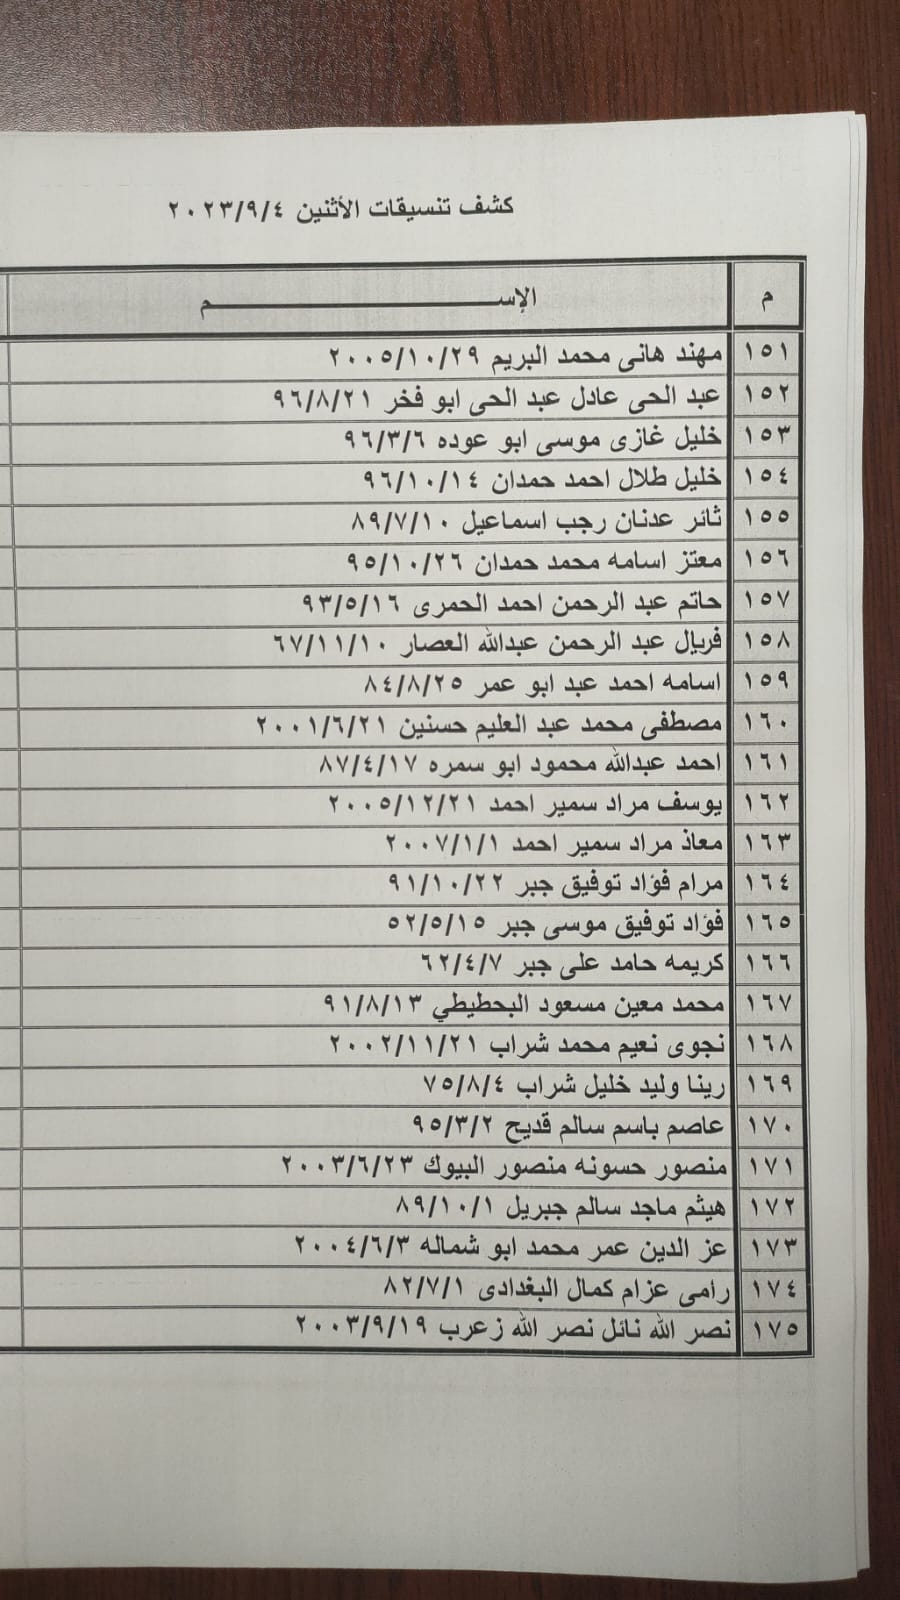 كشف تنسيقات الأثنين ٢٠٢٣/٩/٤
م الإســـــــــــــــــــــــــــــــــم
١٥١ مهند هانى محمد البريم ٢٠٠٥/١٠/٢٩
١٥٢ عبد الحى عادل عبد الحى ابو فخر ٩٦/٨/٢١
١٥٣ خليل غازى موسى ابو عوده ٩٦/٣/٦
١٥٤ خليل طلال احمد حمدان ٩٦/١٠/١٤
١٥٥ ثائر عدنان رجب اسماعيل ٨٩/٧/١٠
١٥٦ معتز اسامه محمد حمدان ٩٥/١٠/٢٦
١٥٧ حاتم عبد الرحمن احمد الحمرى ٩٣/٥/١٦
١٥٨ فريال عبد الرحمن عبدالله العصار ٦٧/١١/١٠
١٥٩ اسامه احمد عبد ابو عمر ٨٤/٨/٢٥
١٦٠ مصطفى محمد عبد العليم حسنين ٢٠٠١/٦/٢١
١٦١ احمد عبدالله محمود ابو سمره ٨٧/٤/١٧
١٦٢ يوسف مراد سمير احمد ٢٠٠٥/١٢/٢١
١٦٣ معاذ مراد سمير احمد ٢٠٠٧/١/١
١٦٤ مرام فؤاد توفيق جبر ٩١/١٠/٢٢
١٦٥ فؤاد توفيق موسى جبر ٥٢/٥/١٥
١٦٦ كريمه حامد على جبر ٦٢/٤/٧
١٦٧ محمد معين مسعود البحطيطي ٩١/٨/١٣
١٦٨ نجوى نعيم محمد شراب ٢٠٠٢/١١/٢١
١٦٩ رينا وليد خليل شراب ٧٥/٨/٤
١٧٠ عاصم باسم سالم قديح ٩٥/٣/٢
١٧١ منصور حسونه منصور البيوك ٢٠٠٣/٦/٢٣
١٧٢ هيثم ماجد سالم جبريل ٨٩/١٠/١
١٧٣ عز الدين عمر محمد ابو شماله ٢٠٠٤/٦/٣
١٧٤ رامى عزام كمال البغدادى ٨٢/٧/١
١٧٥ نصر الله نائل نصر الله زعرب ٢٠٠٣/٩/١٩